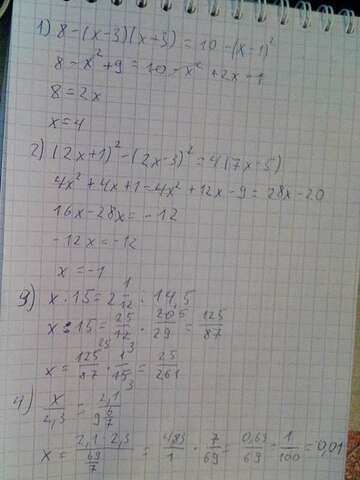 1) 8-(x-3)(x+3)=10-(x-1)²
8-x²+9=10-x²+2x-1
8=2x
x=4
2) (2x+1)²-(2x-3)²=4(7x-5)
4x²+4x+1=4x²+12x-9=28x-20
16x-28x=-12
-12x=-12
x=-1
3) x·15=2 1/12 : 14,5
x·15=25/12 · 20 5/29 = 125/87
x=125/87 · 1/15 = 25/261
4) x/2,3 = 2,1/9 6/7
x= 2,1·2,3 / 69/7 = 4,83/1 · 7/69 = 0,69/69 · 1/100 = 0,01